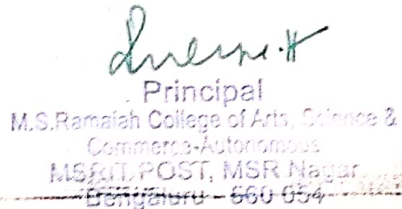 Principal
M.S.Ramaiah College of Arts, Science &
Commerce-Autonomous
MSRIT POST, MSR Nagar
Bengaluru - 560 054